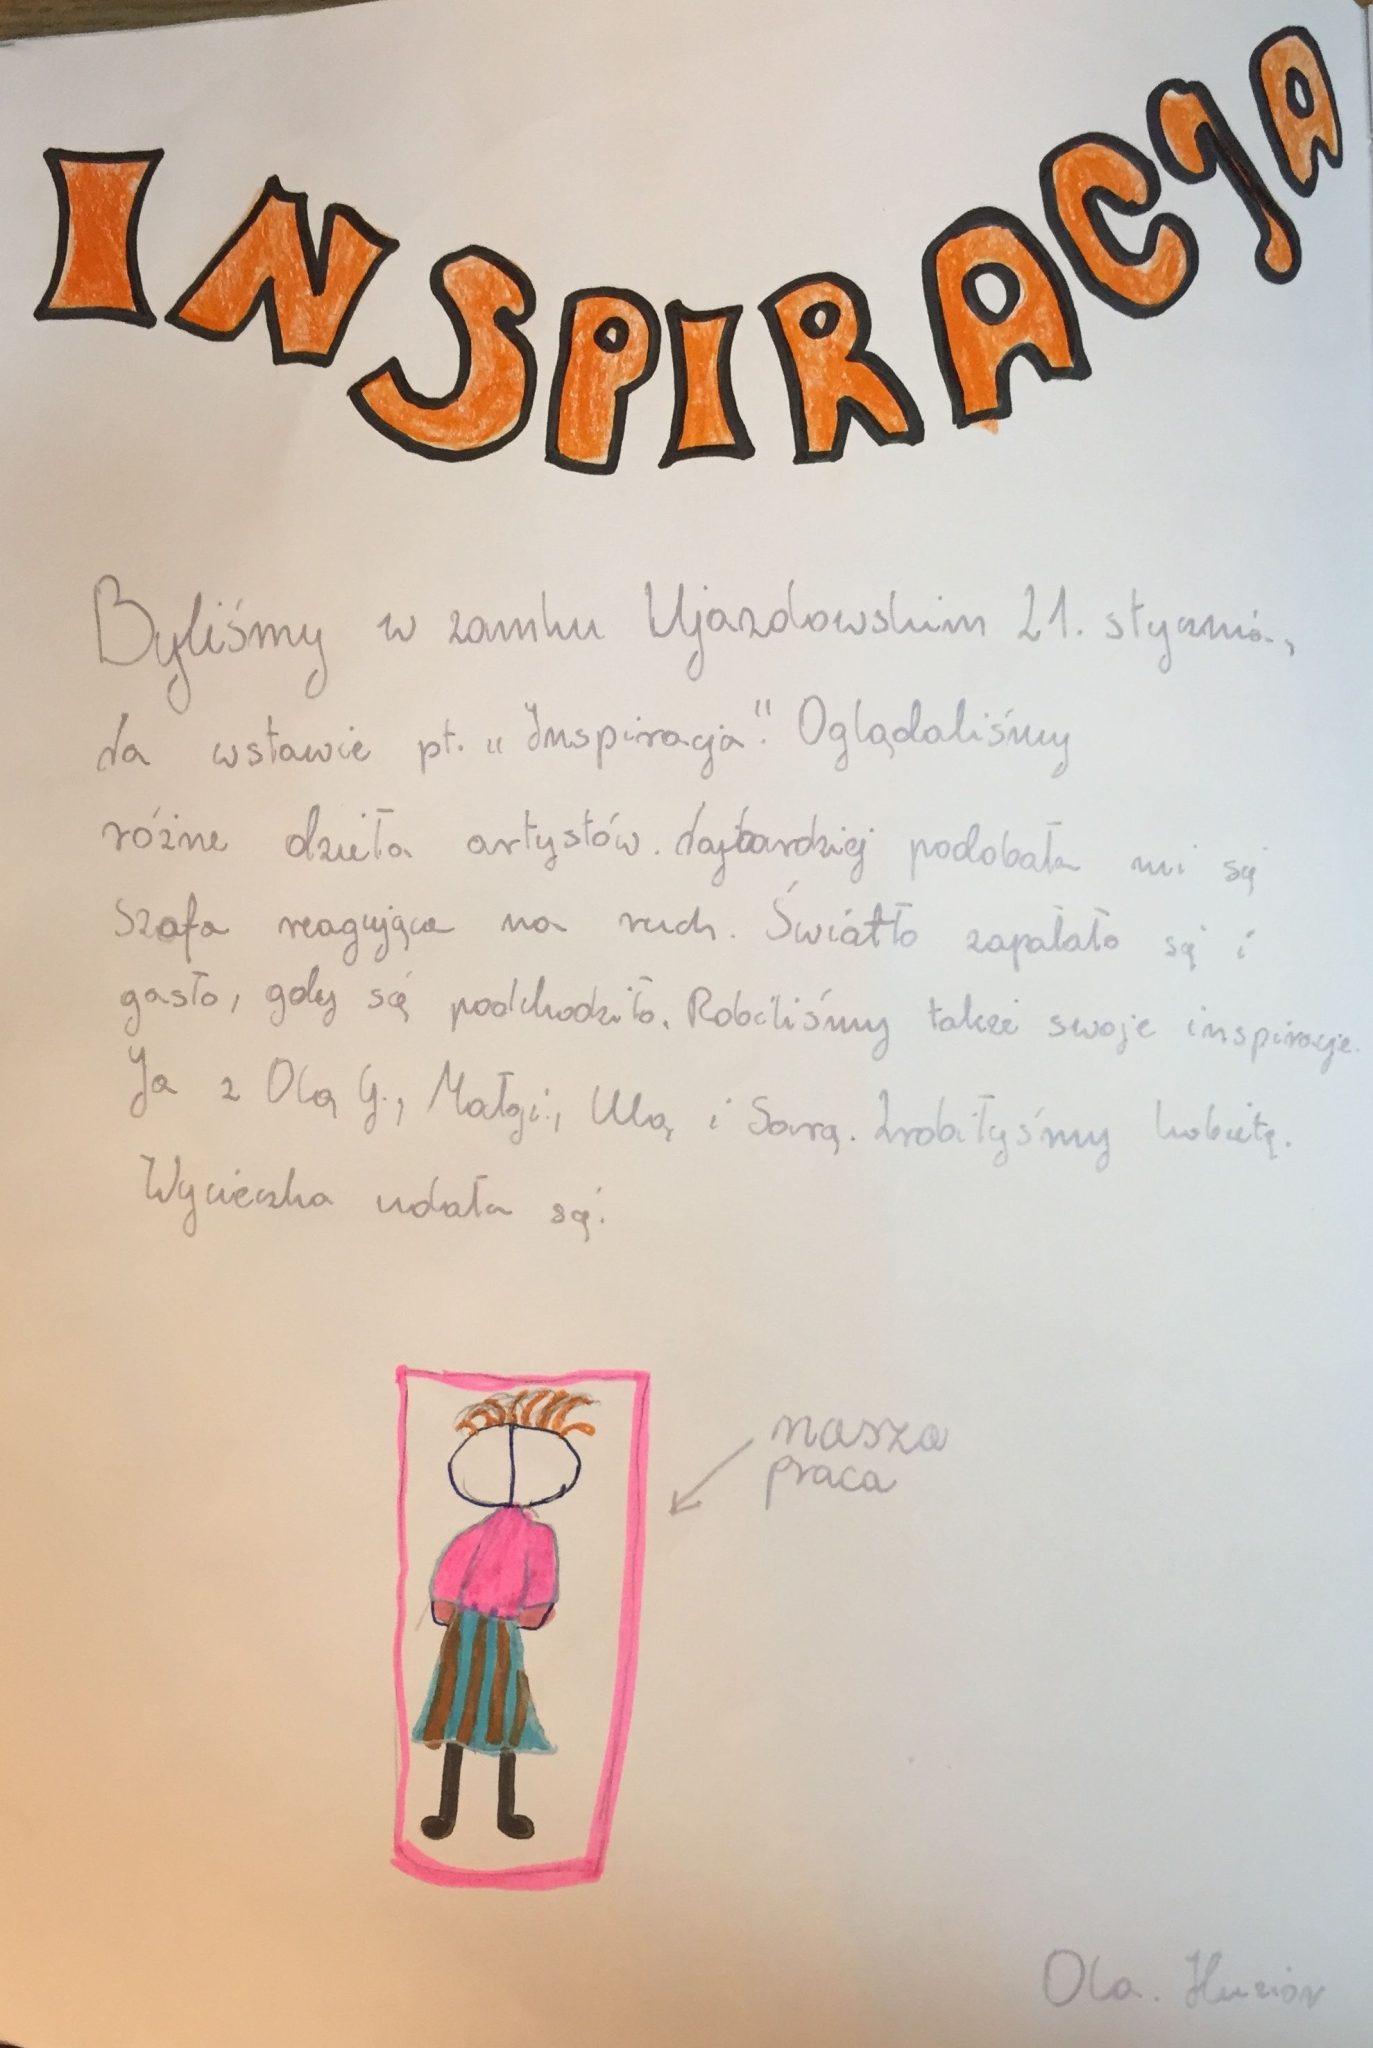 INSPIRACJA
Byliśmy w zamku Ujazdowskim 21. stycznia,
Na wstawie pt. „Inspiracja". Oglądaliśmy
różne dzieła artystów. Najbardziej podobała mi się
Szafa reagująca na ruch. Światło zapalało się i
gasło, gdy się podchodziło. Robiliśmy także swoje inspiracje.
Ja z Olą G., Małgi., Ulą i Sarą. Zrobiłyśmy kobietę.
Wycieczka udała się.
nasza
praca
Ola.